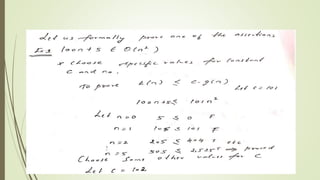 Let us formally prove one of the assertions
Ex:3 100n+5 ∈ O(n²)
* Choose specific values for constant
C and n₀.
To prove t(n) ≤ c·g(n) Let c=101
100n+5 ≤ 101n²
Let n=0 5 ≤ 0 F
n=1 105 ≤ 101 F
n=2 205 ≤ 404 T etc
n=5 505 ≤ 2525 T ⇒ proved
Choose some other value for C
Let C = 102